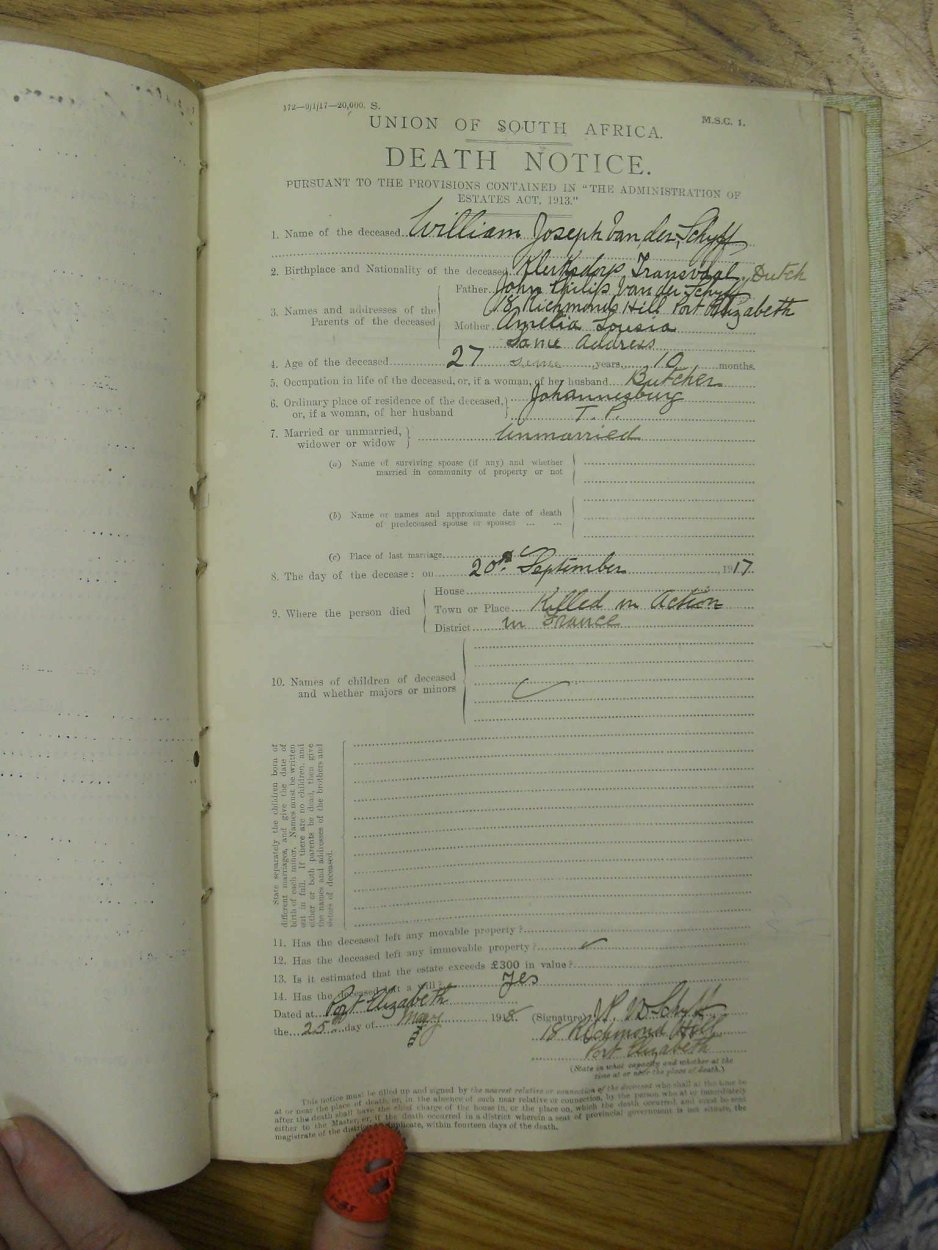 172—9/1/17—20,000. S.
M.S.C. 1.
UNION OF SOUTH AFRICA.
DEATH NOTICE.
PURSUANT TO THE PROVISIONS CONTAINED IN "THE ADMINISTRATION OF
ESTATES ACT, 1913."
1. Name of the deceased William Joseph Van der Schyff
2. Birthplace and Nationality of the deceased Klerksdorp Transvaal. Dutch
3. Names and addresses of the Parents of the deceased
Father John Philip Van der Schyff
18 Richmond Hill Port Elizabeth
Mother Amelia Lousia
Same Address
4. Age of the deceased 27 years 10 months.
5. Occupation in life of the deceased, or, if a woman, of her husband Butcher
6. Ordinary place of residence of the deceased, Johannesburg
or, if a woman, of her husband T. P.
7. Married or unmarried, widower or widow Unmarried
(a) Name of surviving spouse (if any) and whether
married in community of property or not
(b) Name or names and approximate date of death
of predeceased spouse or spouses ... ...
(c) Place of last marriage
8. The day of the decease: on 20th September 1917
9. Where the person died
House
Town or Place Killed in Action
District in France
10. Names of children of deceased
and whether majors or minors
State separately the children born of
different marriages, and give the date of
birth of each minor. Names must be written
out in full. If there are no children, and
either or both parents be dead, then give
the names and addresses of the brothers and
sisters of deceased.
11. Has the deceased left any movable property?
12. Has the deceased left any immovable property?
13. Is it estimated that the estate exceeds £300 in value?
14. Has the deceased left a will? Yes
Dated at Port Elizabeth
the 25th day of May 1918. (Signature)
18 Richmond Hill
Port Elizabeth
(State in what capacity and whether at the
time at or near the place of death.)
This notice must be filled up and signed by the nearest relative or connection of the deceased who shall at the time be
at or near the place of death, or, in the absence of such near relative or connection, by the person who at or immediately
after the death shall have the chief charge of the house in, or the place on, which the death occurred, and must be sent
either to the Master, or, if the death occurred in a district wherein a seat of provincial government is not situate, the
magistrate of the district in duplicate, within fourteen days of the death.